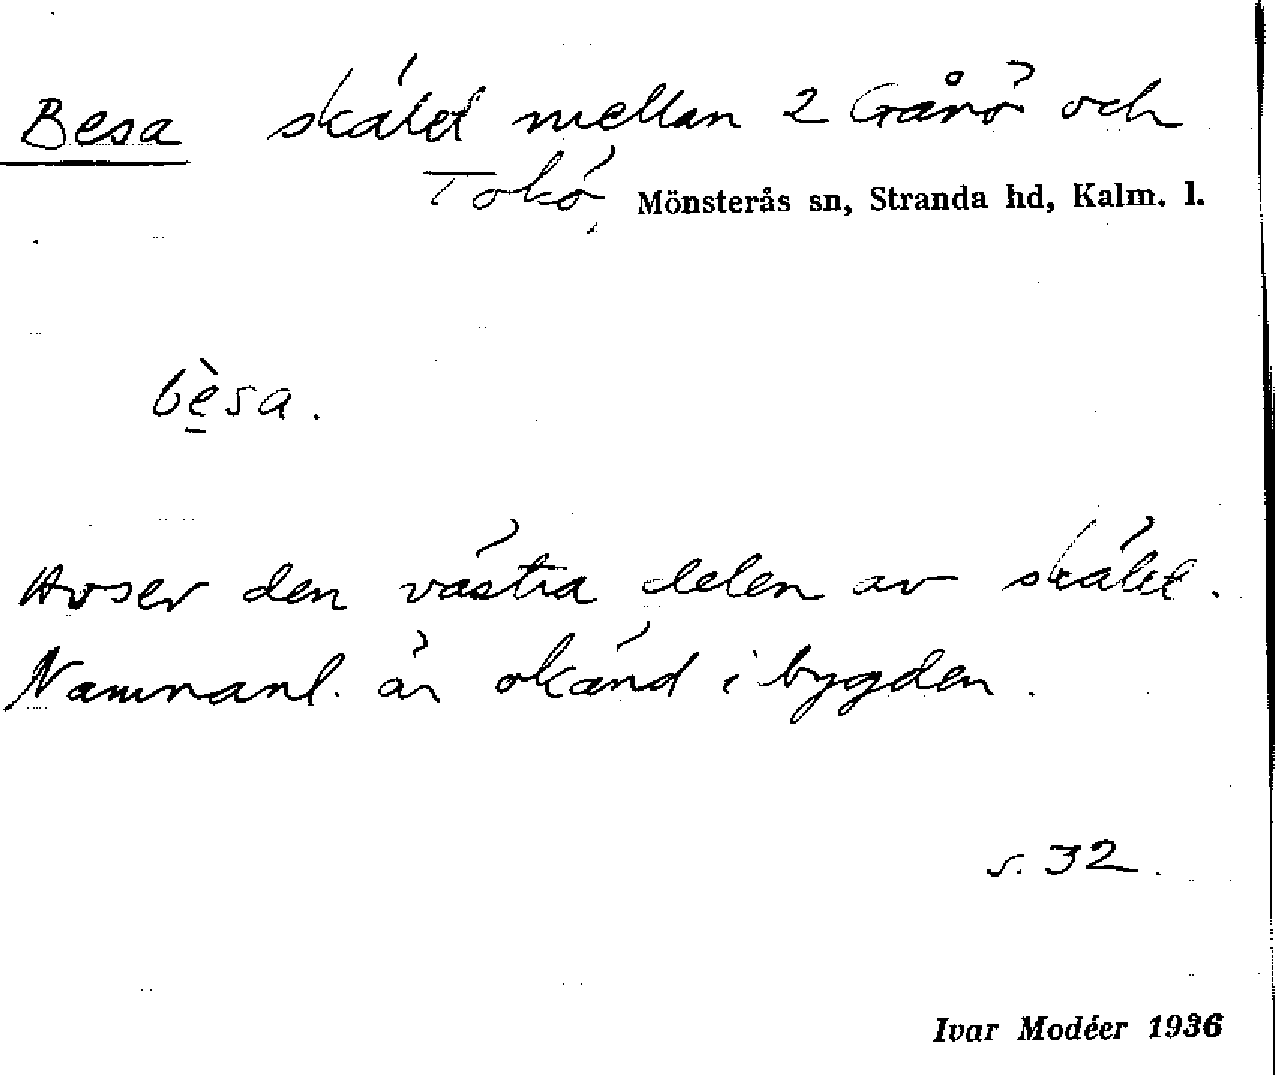 Besa skälet mellan 2 Gårö och
Tokö, Mönsterås sn, Stranda hd, Kalm. l.
bè̱sa.
Avser den västra delen av skälet.
Namnanl. är okänd i bygden.
s. 32.
Ivar Modéer 1936